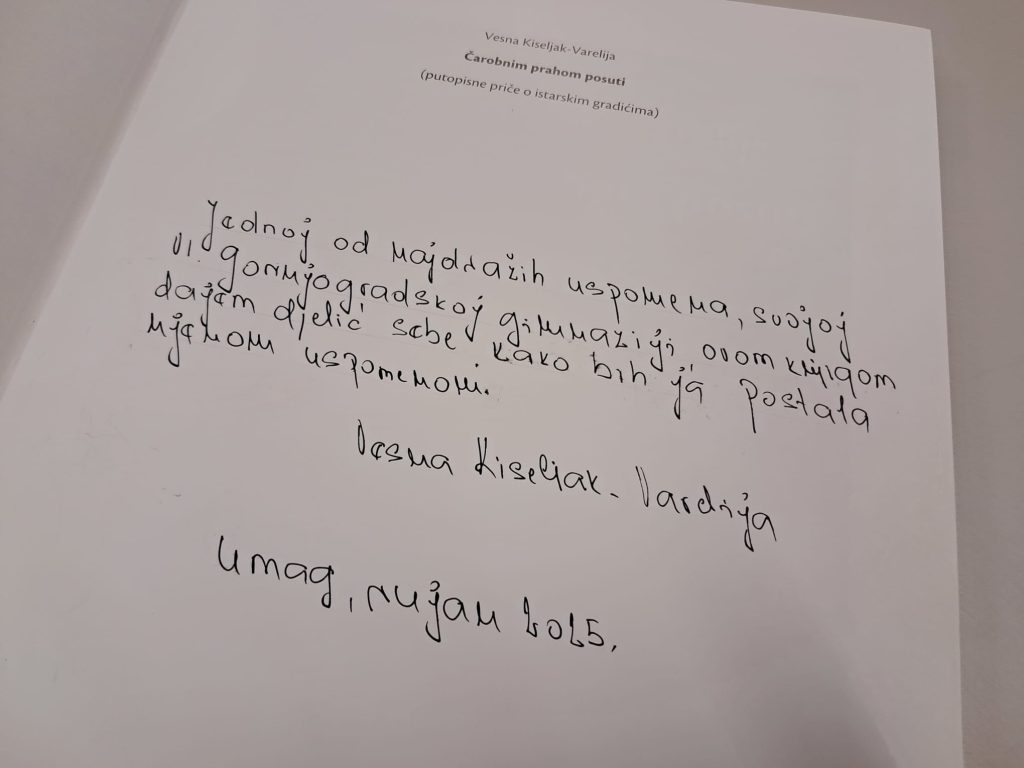 Vesna Kiseljak-Varelija
Čarobnim prahom posuti
(putopisne priče o istarskim gradićima)
Jednoj od najdražih uspomena, svojoj
VI. gornjogradskoj gimnaziji, ovom knjigom
dajem djelić sebe kako bih ja postala
njenom uspomenom.
Vesna Kiseljak-Varelija
Umag, rujan 2025.